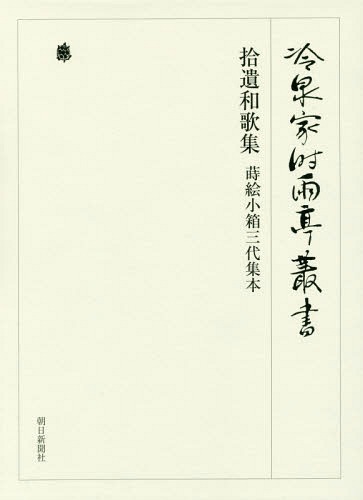 冷泉家時雨亭叢書
拾遺和歌集 蒔絵小箱三代集本
朝日新聞社